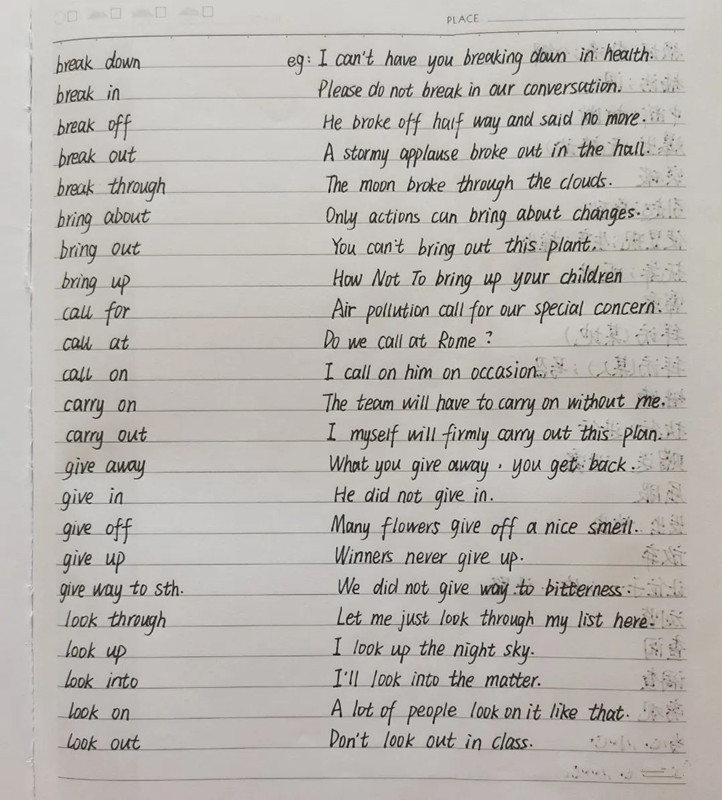 PLACE
break down eg: I can't have you breaking down in health.
break in Please do not break in our conversation.
break off He broke off half way and said no more.
break out A stormy applause broke out in the hall.
break through The moon broke through the clouds.
bring about Only actions can bring about changes.
bring out You can't bring out this plant.
bring up How Not To bring up your children
call for Air pollution call for our special concern.
call at Do we call at Rome ?
call on I call on him on occasion.
carry on The team will have to carry on without me.
carry out I myself will firmly carry out this plan.
give away What you give away , you get back .
give in He did not give in.
give off Many flowers give off a nice smell.
give up Winners never give up.
give way to sth. We did not give way to bitterness.
look through Let me just look through my list here.
look up I look up the night sky.
look into I'll look into the matter.
look on A lot of people look on it like that.
look out Don't look out in class.